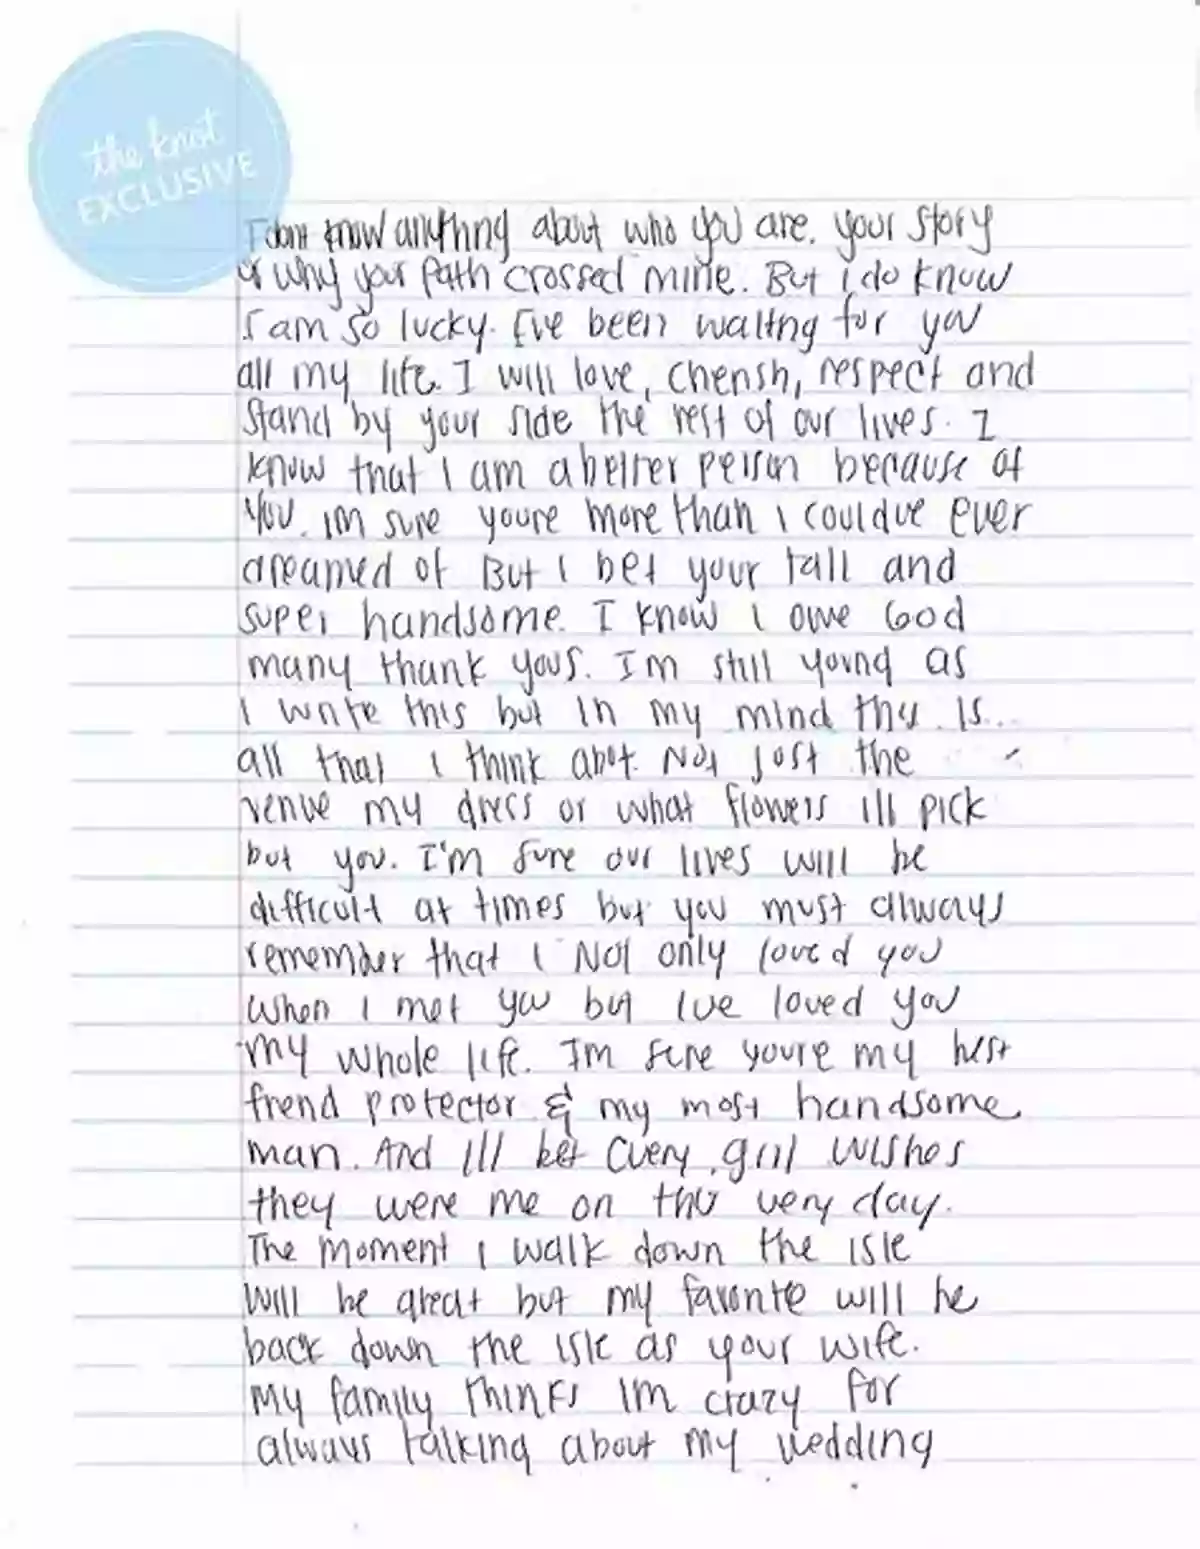 the knot
EXCLUSIVE
I dont know anything about who you are. your story
or why your path crossed mine. But i do know
I am so lucky. I've been waiting for you
all my life. I will love, cherish, respect and
stand by your side the rest of our lives. I
know that I am a better person because of
you. im sure youre more than i couldve ever
dreamed of But I bet your tall and
super handsome. I know I owe God
many thank yous. I'm still young as
I write this but in my mind this is...
all that I think abot. Not just the
venue my dress or what flowers ill pick
but you. I'm sure our lives will be
difficult at times but you must always
remember that I Not only loved you
when I met you but Ive loved you
my whole life. Im sure youre my best
friend protector & my most handsome
man. And Ill bet every girl wishes
they were me on this very day.
The moment I walk down the isle
will be great but my favorite will be
back down the isle as your wife.
My family thinks Im crazy for
always talking about my wedding